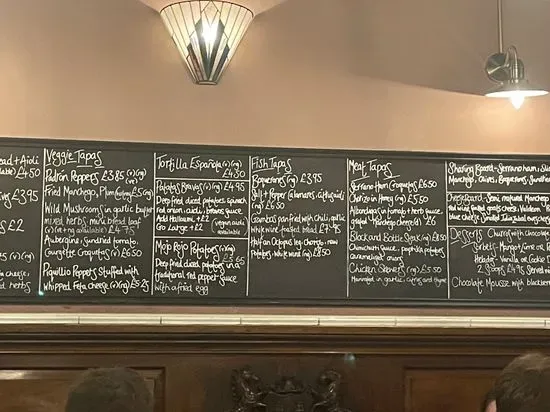 ead + Aioli
£4.50
£3.95
£2
cheese,
herbs
Veggie Tapas
Padrón Peppers £3.85 (v)(ng)
(ve)
Fried Manchego, Plum £5.50
Wild Mushrooms in garlic butter
mixed herbs, mini bread loaf
(v) £4.75
Aubergine, Sundried tomato,
Courgette Croquetas £6.50
Piquillo Peppers Stuffed with
whipped Feta cheese (v)(ng) £5.25
Tortilla Española (v)(ng)
£4.30
Patatas Bravas (v) £4.95
Deep fried diced potatoes, spinach
red onion, garlic, bravas sauce
Add Halloumi +£2
Go Large +£2
Mojo Rojo Potatoes (v)(ng)
£3.65
Deep fried diced potatoes in a
traditional red pepper sauce
with a fried egg
Fish Tapas
Boquerones (ng) £3.95
Salt + Pepper Calamares, citrus aioli
£6.50
pan fried with chilli, garlic
white wine toasted bread £7.95
Half an Octopus leg, Chorizo, new
Potatoes, white wine (ng) £8.50
Meat Tapas
Serrano Ham Croquetas £6.50
Chorizo in Honey (ng) £5.50
Albondigas in tomato + herb sauce,
Manchego cheese £6
Black and Bottle Steak (ng) £8.50
Chimichurri sauce,
caramelised onions
Chicken Skewers (ng) £5.50
Marinated in garlic, citrus and thyme
Sharing Board - Serrano ham,
Manchego, Olives, Boquerones,
Cheeseboard - Semi cured Manchego
red wine
blue cheese,
Desserts Churros with chocolate
Sorbet - Mango/Lime or
Helado - Vanilla or Cookie
2 Scoops £4.95 Served
Chocolate Mousse with blackberry